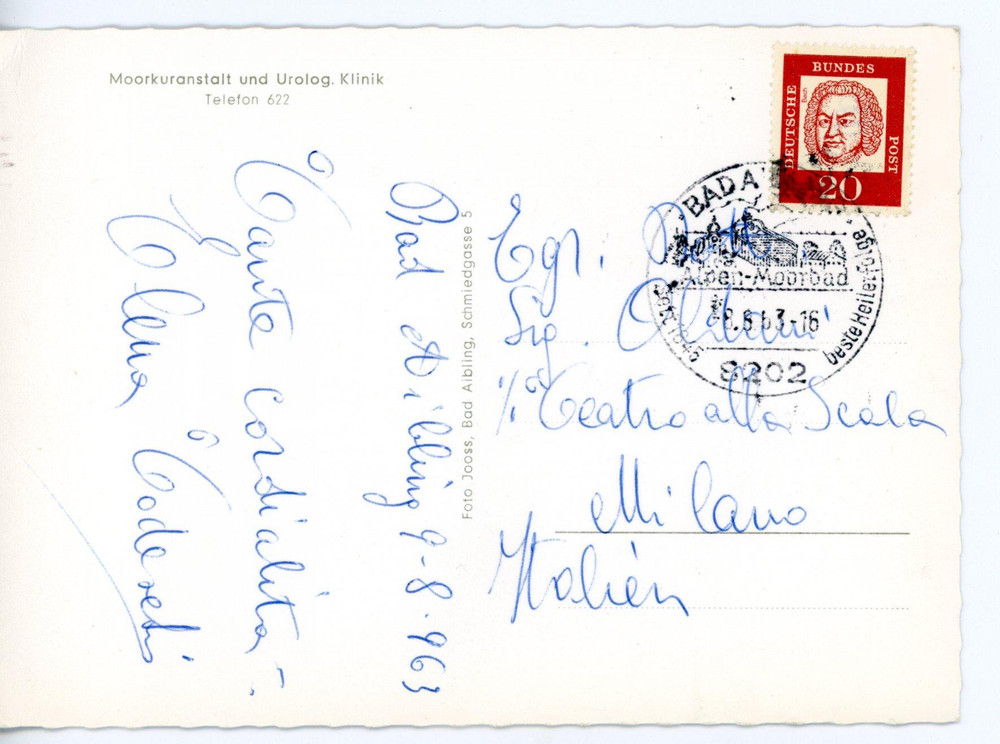 Moorkuranstalt und Urolog. Klinik
Telefon 622
DEUTSCHE
BUNDES
POST
Bach
20
BAD A
Alpen-Moorbad
seit 1845
beste Heilerfolge
8.63-16
8202
Foto Jooss, Bad Aibling, Schmiedgasse 5
Bad Aibling 9-8-963
Tante cordialità-.
Elena
Egr.
Sig.
Teatro alla Scala
Milano
Italien